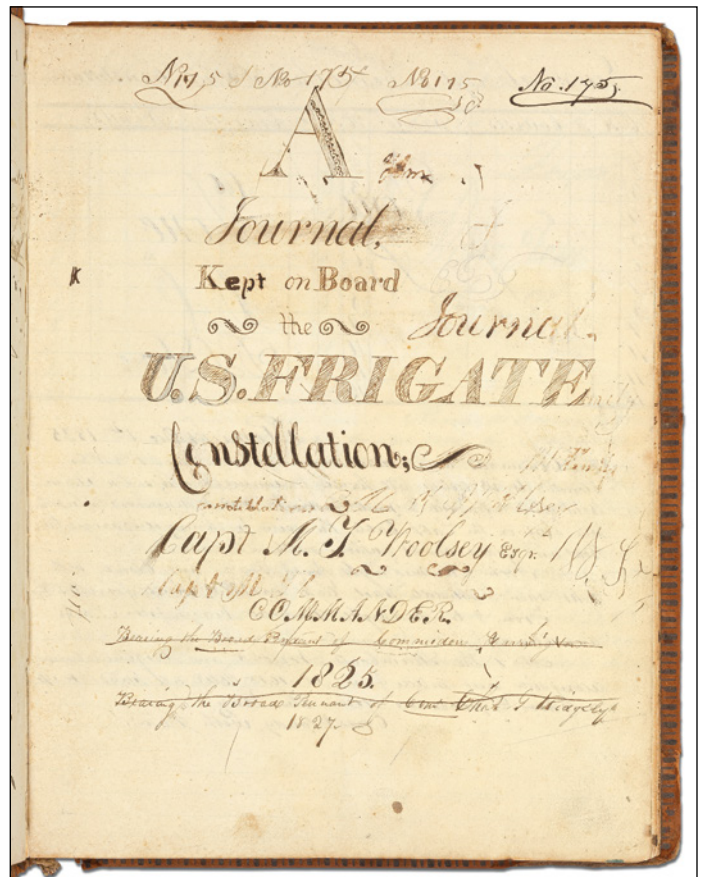 No 175 No 175 No 175 No. 175
A
Journal,
Kept on Board
K
the Journal.
U.S. FRIGATE
Constellation;
Constellation
Capt M. T. Woolsey Esqr.
Capt M
COMMANDER.
Bearing the Broad Pennant of Commodore
1825.
Bearing the Broad Pennant of Com Chas G Ridgely
1827